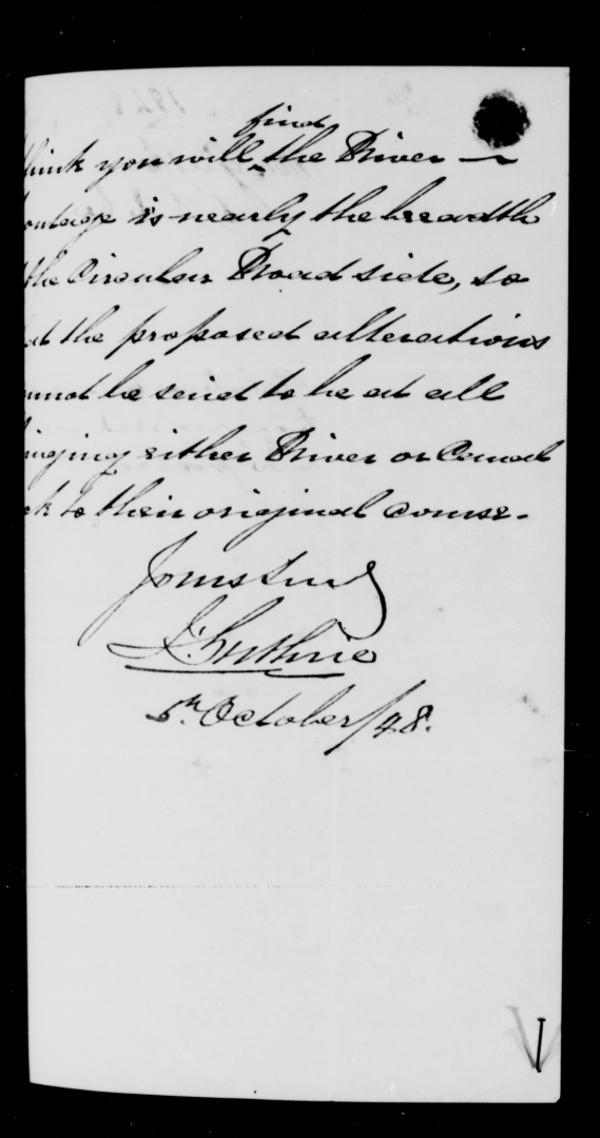 find
think you will ^ the River —
ontage is nearly the breadth
the Circular Road side, so
at the proposed alterations
annot be said to be at all
inging either River or Canal
ck to their original course.
Yours truly
J. Guthrie
5th October/48.